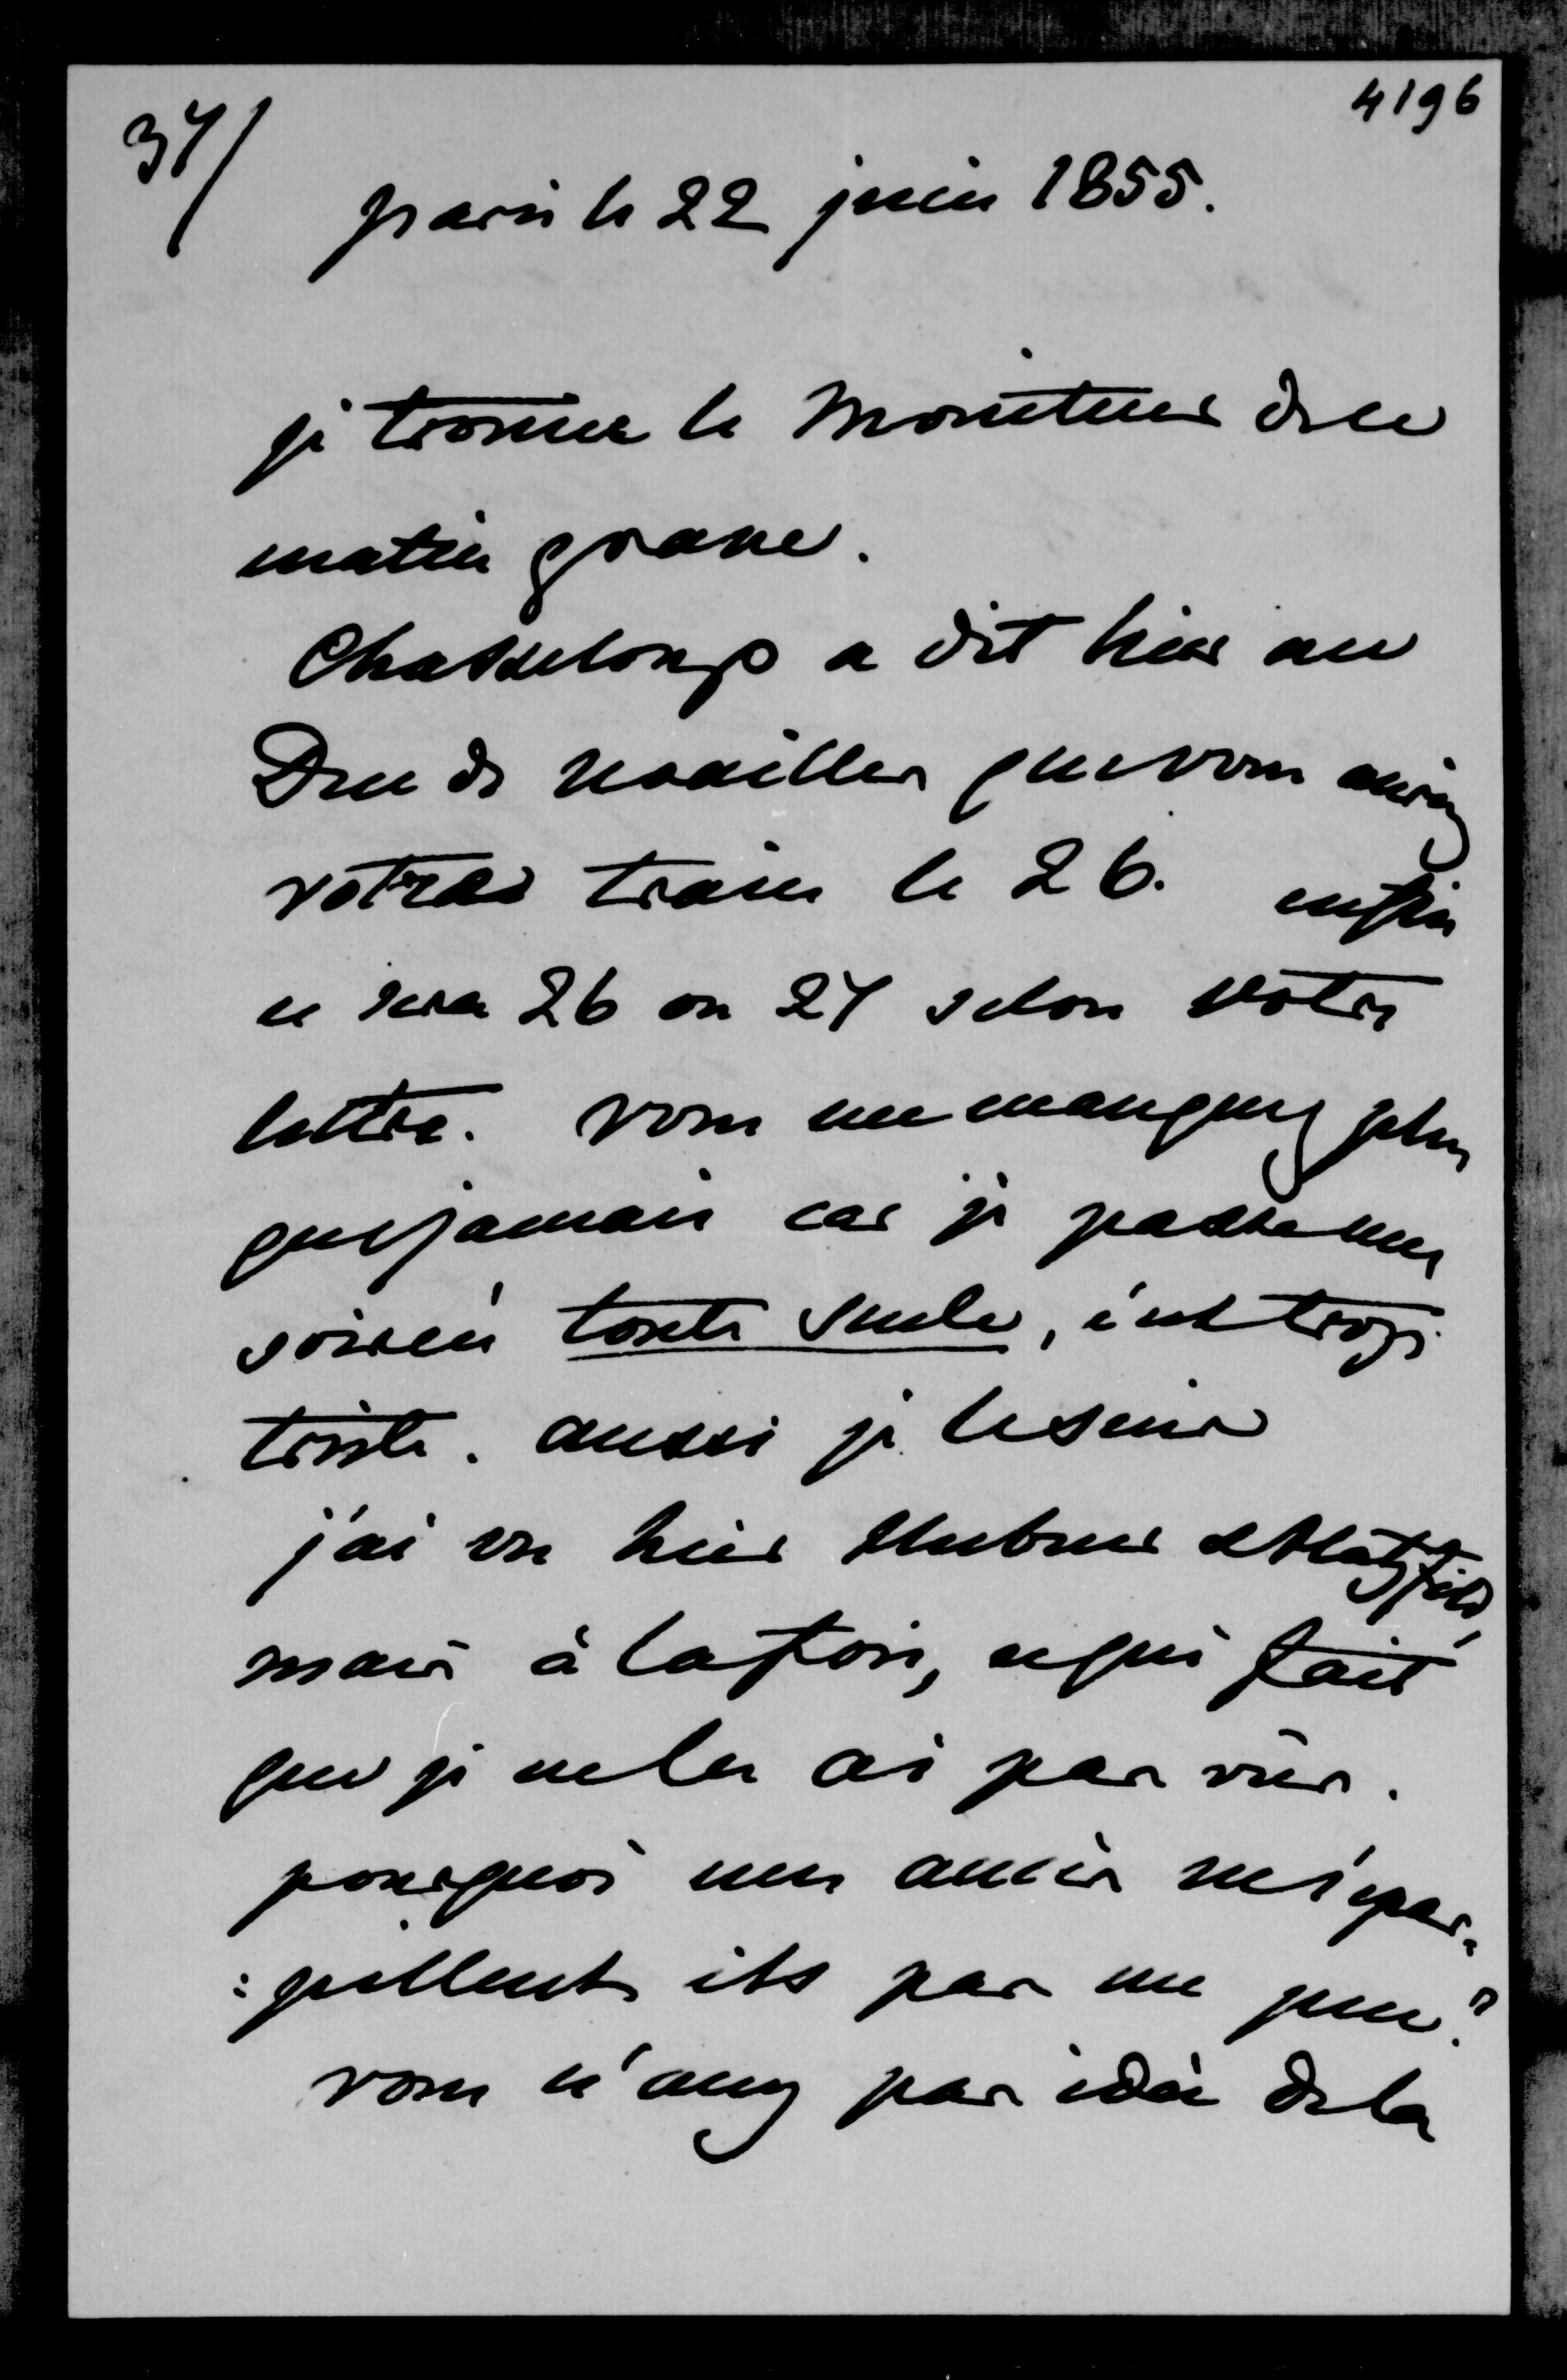 37/
4196
paris le 22 juin 1855.
je trouve le Moniteur de ce
matin grave.
Chasseloup a dit hier au
Duc de Noailles que vous aurez
votre train le 26. enfin
ce sera 26 ou 27 selon votre
lettre. vous me manquez plus
que jamais car je passe mes
soirées toute seule, c'est trop
triste. aussi je le suis
j'ai vu hier Hubner & Hatzfeld,
mais à la fois, ce qui fait
que je ne les ai pas vus.
pourquoi mes amis ne s'epar-
:pillent ils pas un peu?
vous n'avez pas idée de la